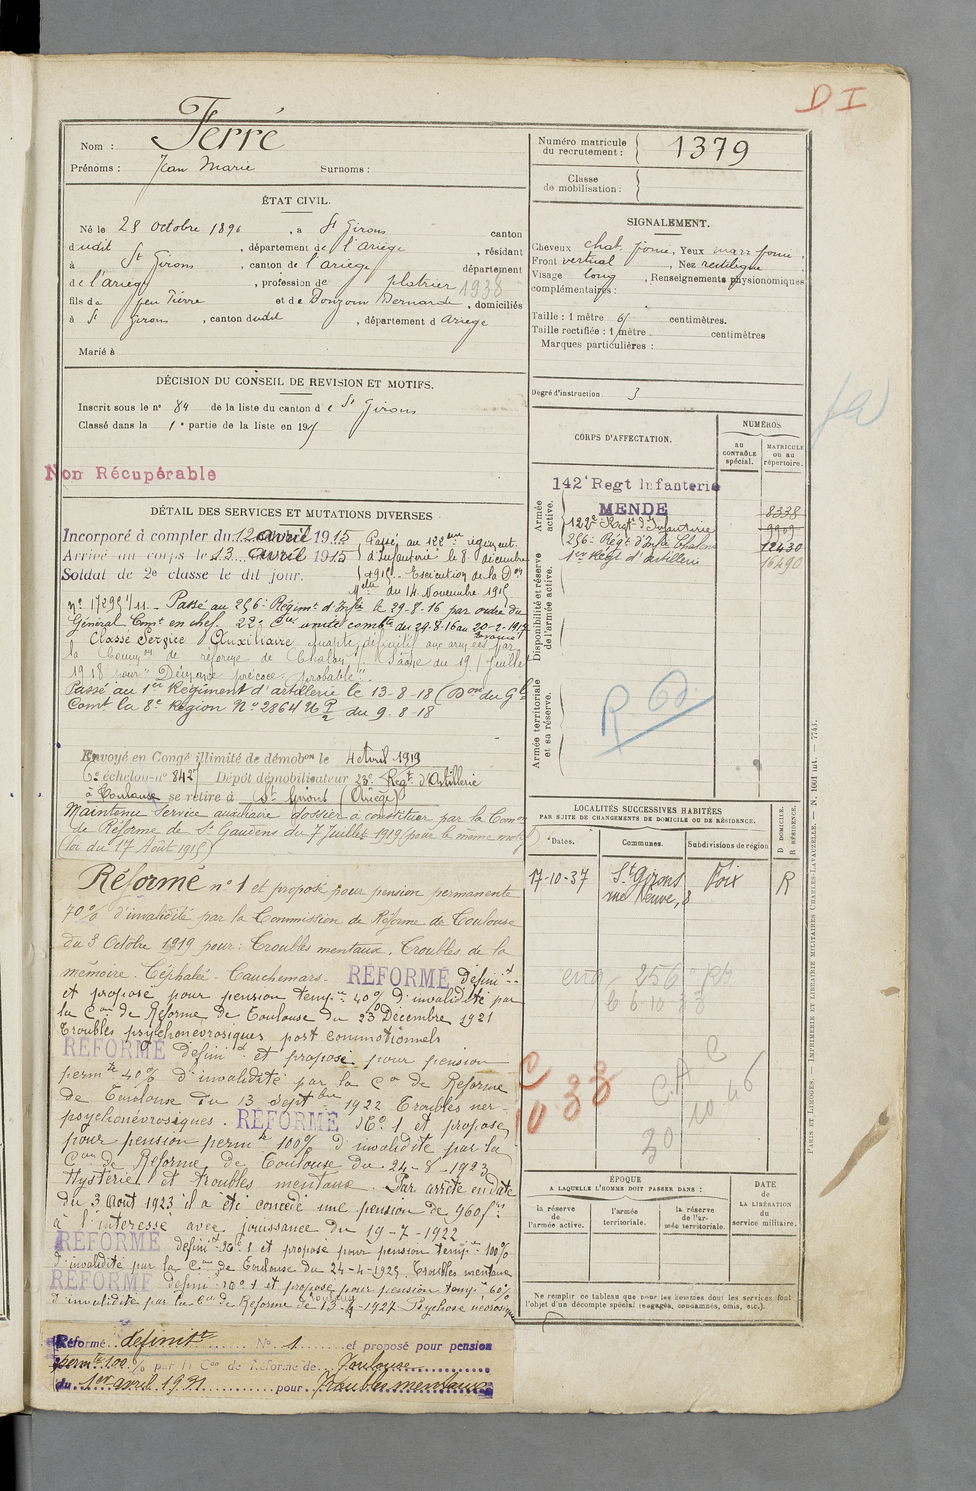 D I
Nom : Ferré
Prénoms : Jean Marie Surnoms :
ÉTAT CIVIL.
Né le 28 octobre 1896, à St Girons canton
dudit, département de l'Ariège, résidant
à St Girons, canton de l'ariège département
de l'ariège, profession de platrier 1938
fils de feu Pierre et de Bonzom Bernarde, domiciliés
à St Girons, canton dudit, département d Ariège
Marié à
DÉCISION DU CONSEIL DE REVISION ET MOTIFS.
Inscrit sous le n° 84 de la liste du canton de St Girons
Classé dans la 1e partie de la liste en 191
Non Récupérable
DÉTAIL DES SERVICES ET MUTATIONS DIVERSES
Incorporé à compter du 12 avril 1915
Arrivé au corps le 13 avril 1915
Soldat de 2e classe le dit jour.
Passé au 122ème régiment
d'Infanterie le 8 décembre
1915. Exécution de la Don
Melle du 14 Novembre 1915
n° 17295 1/11 - Passé au 256e Régimt d'Infie le 29-8-16 par ordre du
Général Comt en chef. 22e Cie unité combte du 29-8-16 au 20-2-1917
Classé Service Auxiliaire, inapte définitif aux armées par
la Common de réforme de Chalon s/ Saône du 19 Juillet
1918 pour "Démence précoce probable".
Passé au 1er Régiment d'artillerie le 13-8-18 (Don du Gl
Comt la 8e Région No 2864 P/2 du 9-8-18
Envoyé en Congé illimité de démobon le 4 Avril 1919
6e échelon n° 842 Dépôt démobilisateur 23e Regt d'Artillerie
à Toulouse se retire à St Girons (Ariège)
Maintenu Service auxiliaire dossier à constituer par la Comon
de Réforme de St Gaudens du 7 Juillet 1919 (pour le même motif)
(loi du 17 Août 1915)
Réformé n° 1 et proposé pour pension permanente
70% d'invalidité par la Commission de Réforme de Toulouse
du 3 Octobre 1919 pour : Troubles mentaux. Troubles de la
mémoire. Céphalé- Cauchemars. RÉFORMÉ définit
et proposé pour pension tempre 40% d'invalidité par
la Con de Réforme de Toulouse du 23 Décembre 1921
Troubles psychonévrosiques post commotionnels
RÉFORMÉ définit et proposé pour pension
permte 40% d'invalidité par la Con de Réforme
de Toulouse du 13 Septbre 1922 Troubles
psychonévrosiques. RÉFORMÉ No 1 et proposé
pour pension permte 100% d'invalidité par la
Con de Réforme de Toulouse du 24-8-1923
Hystérie et troubles mentaux. Par arrêté en date
du 3 Août 1923 il a été concédé une pension de 960frs
à l'intéressé avec jouissance du 19-7-1922
RÉFORMÉ définit No 1 et proposé pour pension tempre 100%
d'invalidité par la Con de Toulouse du 24-4-1925 Troubles mentaux
RÉFORMÉ définit No 1 et proposé pour pension tempre 60%
d'invalidité par la Con de Réforme de Toulouse 13-4-1927 Psychose
Réformé définitt No 1 et proposé pour pension
permte 100% par la Con de Réforme de Toulouse
du 1er avril 1931 pour Troubles mentaux
Numéro matricule
du recrutement : 1379
Classe
de mobilisation :
SIGNALEMENT.
Cheveux chat. foncé, Yeux marr. foncé,
Front vertical, Nez rectiligne
Visage long, Renseignements physionomiques
complémentaires :
Taille : 1 mètre 61 centimètres.
Taille rectifiée : 1 mètre centimètres
Marques particulières :
Degré d'instruction 3
CORPS D'AFFECTATION.
NUMÉROS
au
CONTRÔLE
spécial.
MATRICULE
ou au
répertoire.
Armée
active.
142e Regt Infanterie
MENDE 8338
122e Regt d'Infanterie 9909
256e Régt d'Infie 12430
1er Regt d'artillerie 16490
Disponibilité et réserve
de l'armée active.
R. 60.
Armée territoriale
et sa réserve.
LOCALITÉS SUCCESSIVES HABITÉES
PAR SUITE DE CHANGEMENTS DE DOMICILE OU DE RÉSIDENCE.
Dates. Communes. Subdivisions de région
D DOMICILE.
R RÉSIDENCE.
17-10-37 St Girons Foix R
rue Neuve, 8
256
6 10 33
C
10 33
C A C
30 10 46
ÉPOQUE
A LAQUELLE L'HOMME DOIT PASSER DANS :
la réserve
de
l'armée active.
l'armée
territoriale.
la réserve
de l'ar-
mée territoriale.
DATE
de
LA LIBÉRATION
du
service militaire.
Ne remplir ce tableau que pour les hommes dont les services font
l'objet d'un décompte spécial (engagés, condamnés, omis, etc.).
PARIS ET LIMOGES. — IMPRIMERIE ET LIBRAIRIE MILITAIRES CHARLES-LAVAUZELLE. — N. 1601 int. — 7743.